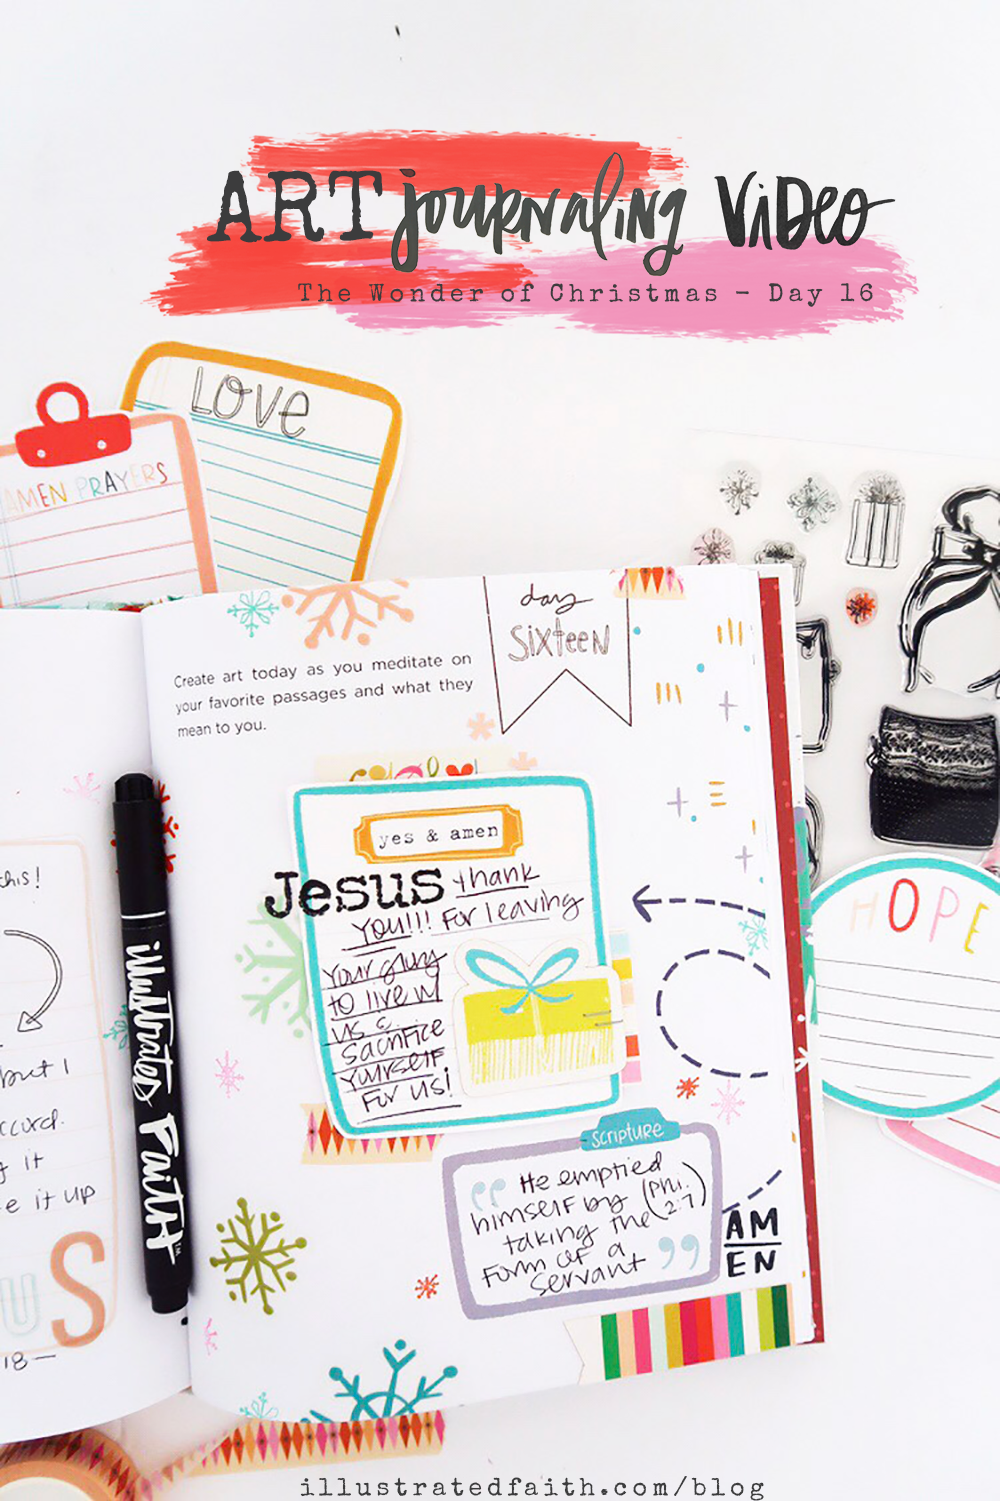 ART journaling VIDEO
The Wonder of Christmas - Day 16
LOVE
AMEN PRAYERS
day
sixteen
Create art today as you meditate on
your favorite passages and what they
mean to you.
yes & amen
Jesus thank
you!!! For leaving
your glory
to live w/
us &
sacrifice
yourself
for us!
HOPE
scripture
“ He emptied
himself by (Phi.
taking the 2:7)
form of a
servant ”
AM
EN
this!
but I
ccord.
g it
e it up
US
18 —
illustrated FAITH™
illustratedfaith.com/blog